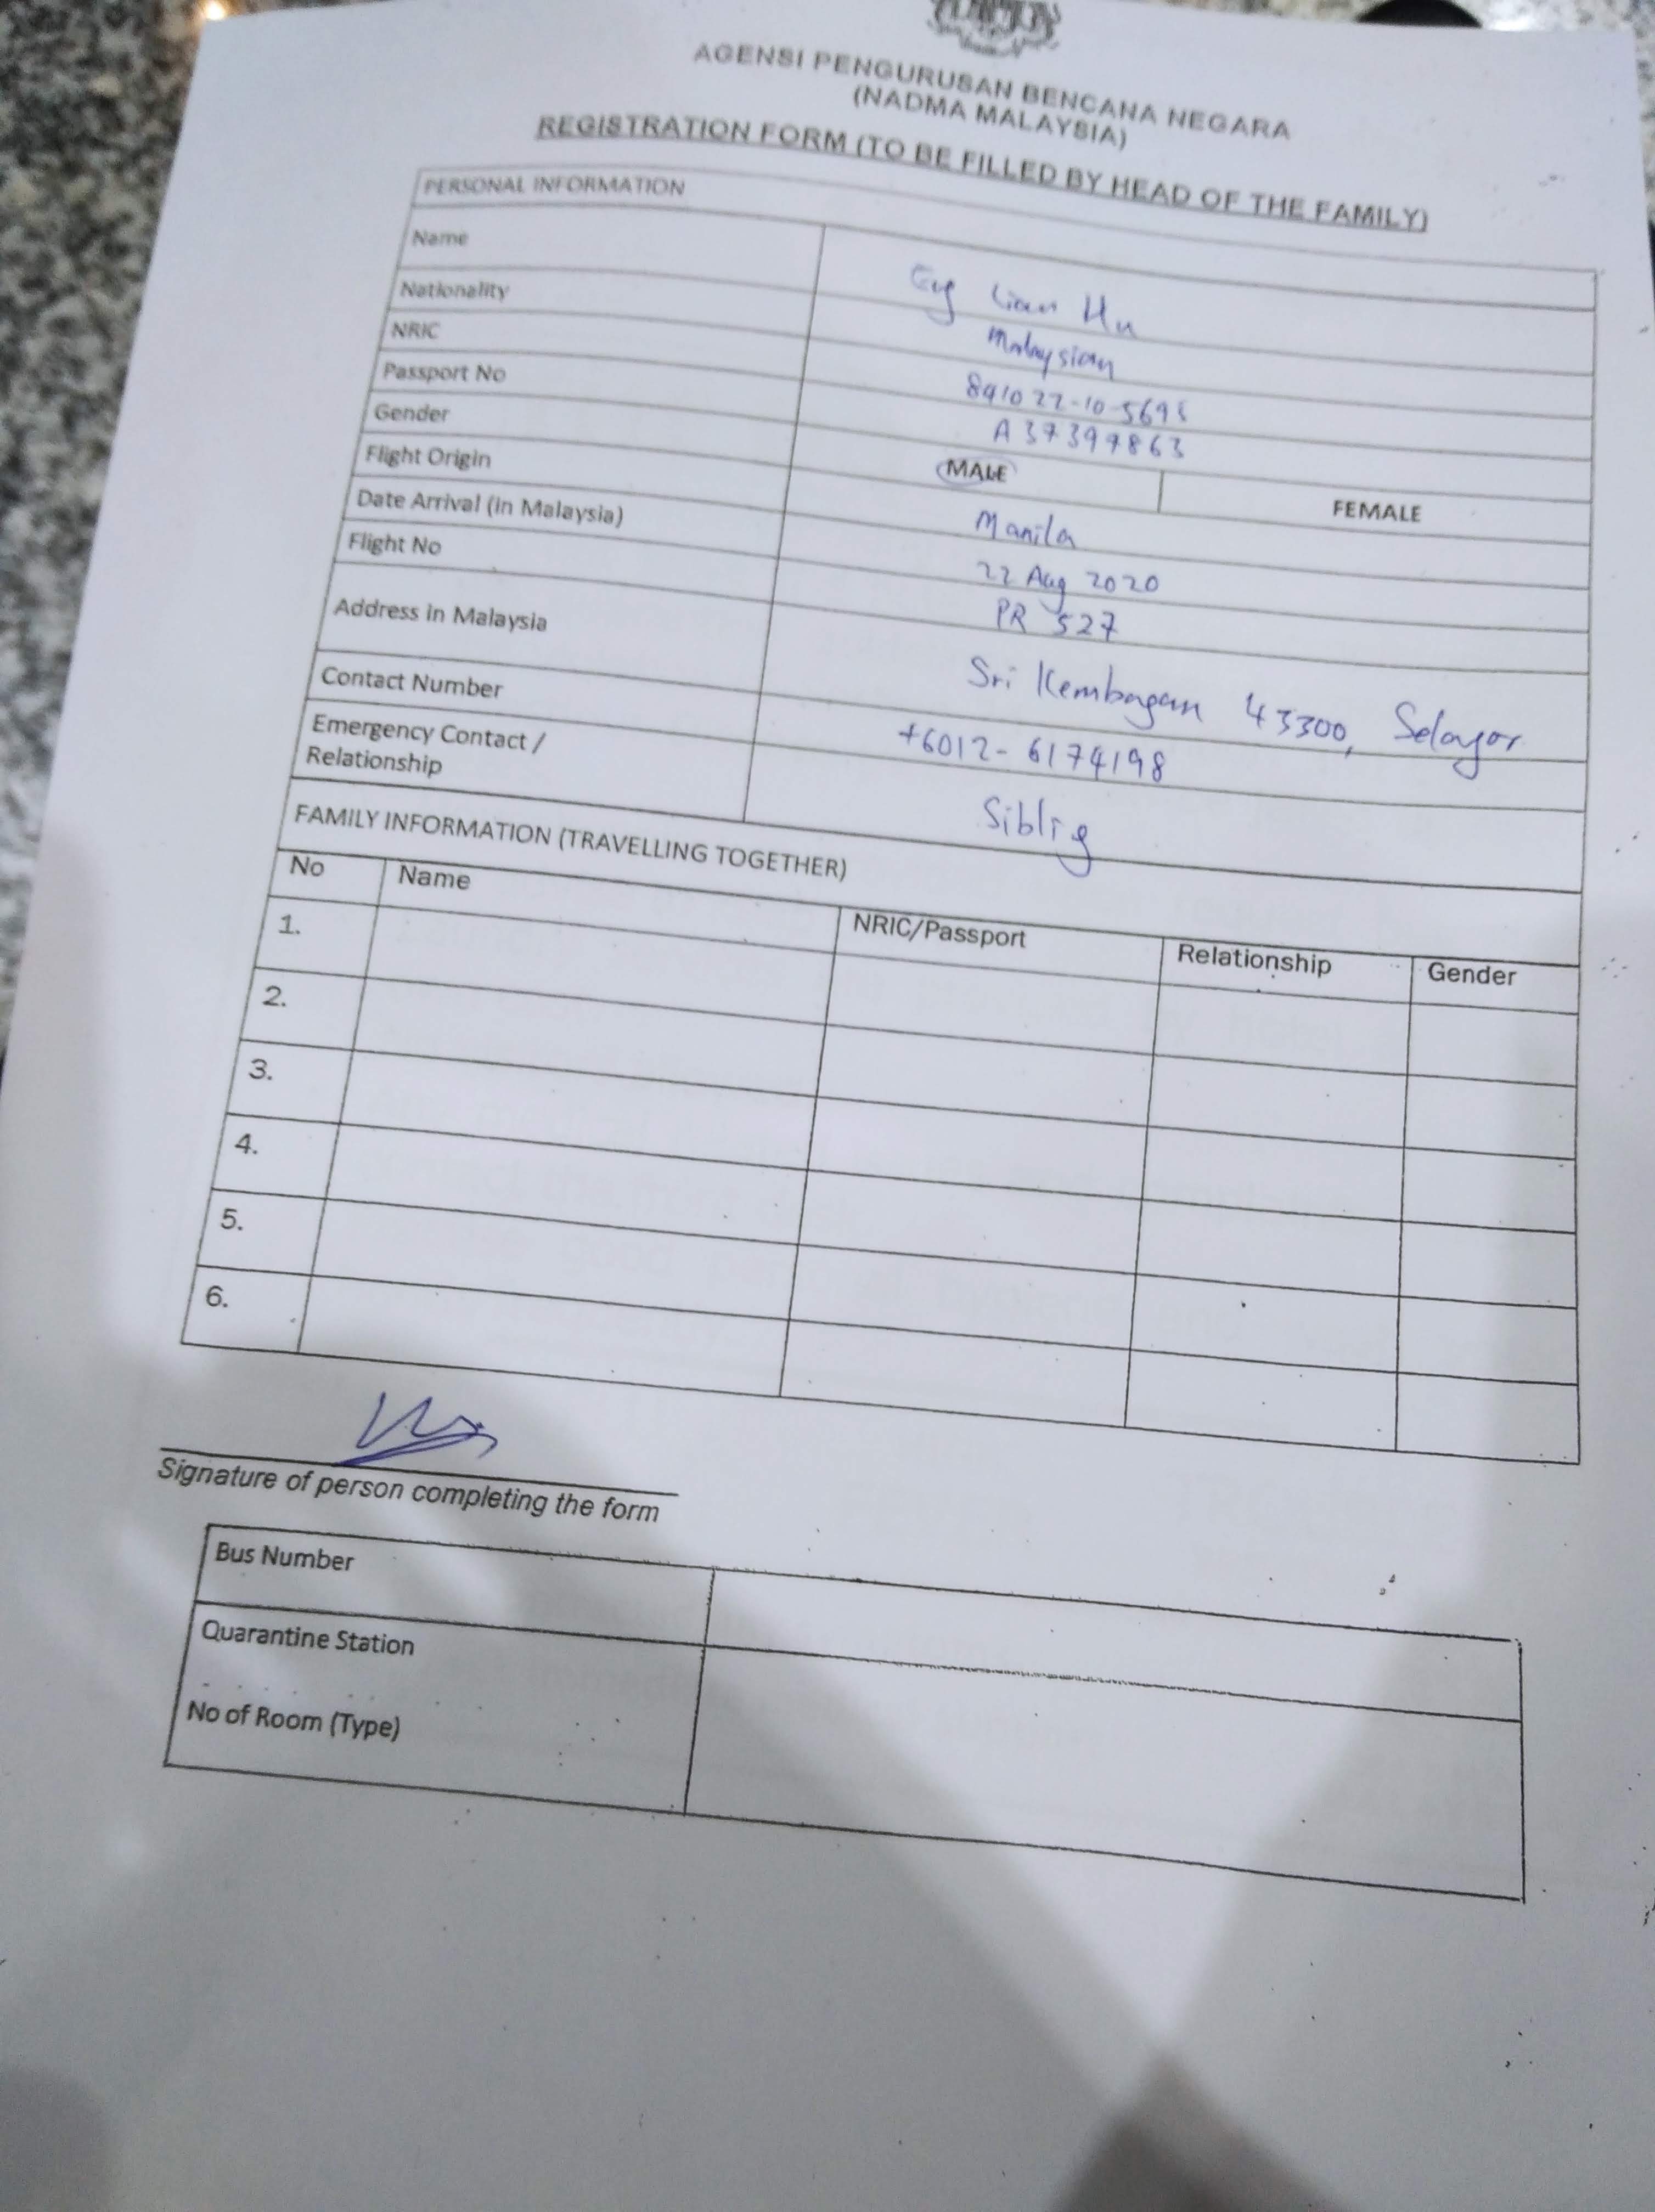 AGENSI PENGURUSAN BENCANA NEGARA
(NADMA MALAYSIA)
REGISTRATION FORM (TO BE FILLED BY HEAD OF THE FAMILY)
PERSONAL INFORMATION
Name Lian Hu
Nationality Malaysian
NRIC
Passport No
Gender MALE FEMALE
Flight Origin Manila
Date Arrival (in Malaysia) 22 Aug 2020
Flight No PR 527
Address in Malaysia Sri Kembagan 43300, Selagor
Contact Number +6012-6174198
Emergency Contact /
Relationship Siblig
FAMILY INFORMATION (TRAVELLING TOGETHER)
No Name NRIC/Passport Relationship Gender
1.
2.
3.
4.
5.
6.
Signature of person completing the form
Bus Number
Quarantine Station
No of Room (Type)